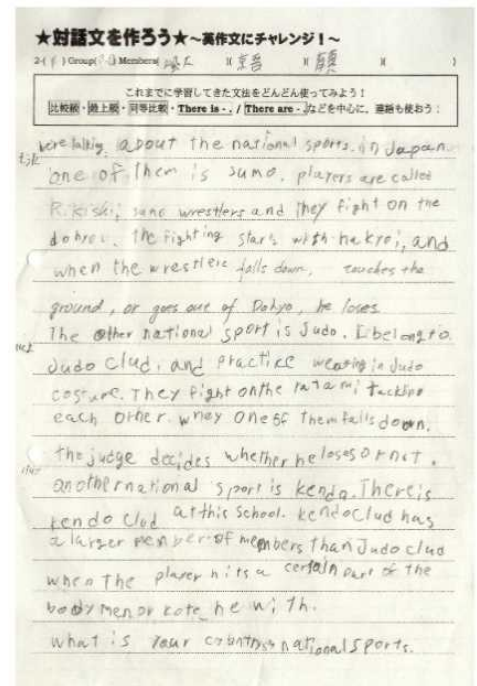 ★対話文を作ろう★～英作文にチャレンジ！～
2-( ) Group( ) Members( )( 京吾 )( )( )
これまでに学習してきた文法をどんどん使ってみよう！
比較級・最上級・同等比較・There is -. / There are -.などを中心に、連語も使おう！
We're talking about the national sports. in Japan
one of them is sumo. players are called
Rikishi, sumo wrestlers and they fight on the
dohyou. the fighting stars with hakyoi, and
when the wrestlers falls down, touches the
ground, or goes out of Dohyo, he loses.
The other national sport is Judo. I belong to
Judo Clud, and practice wearing in Judo
costume. They fight on the tatami tackling
each other. when one of them falls down,
the judge decides whether he loses or not.
another national sport is kendo. There is
kendo Clud at this School. kendo Clud has
a larger member of members than Judo clud
when the player hits a certain part of the
body men or kote he with.
what is your country's national sports.